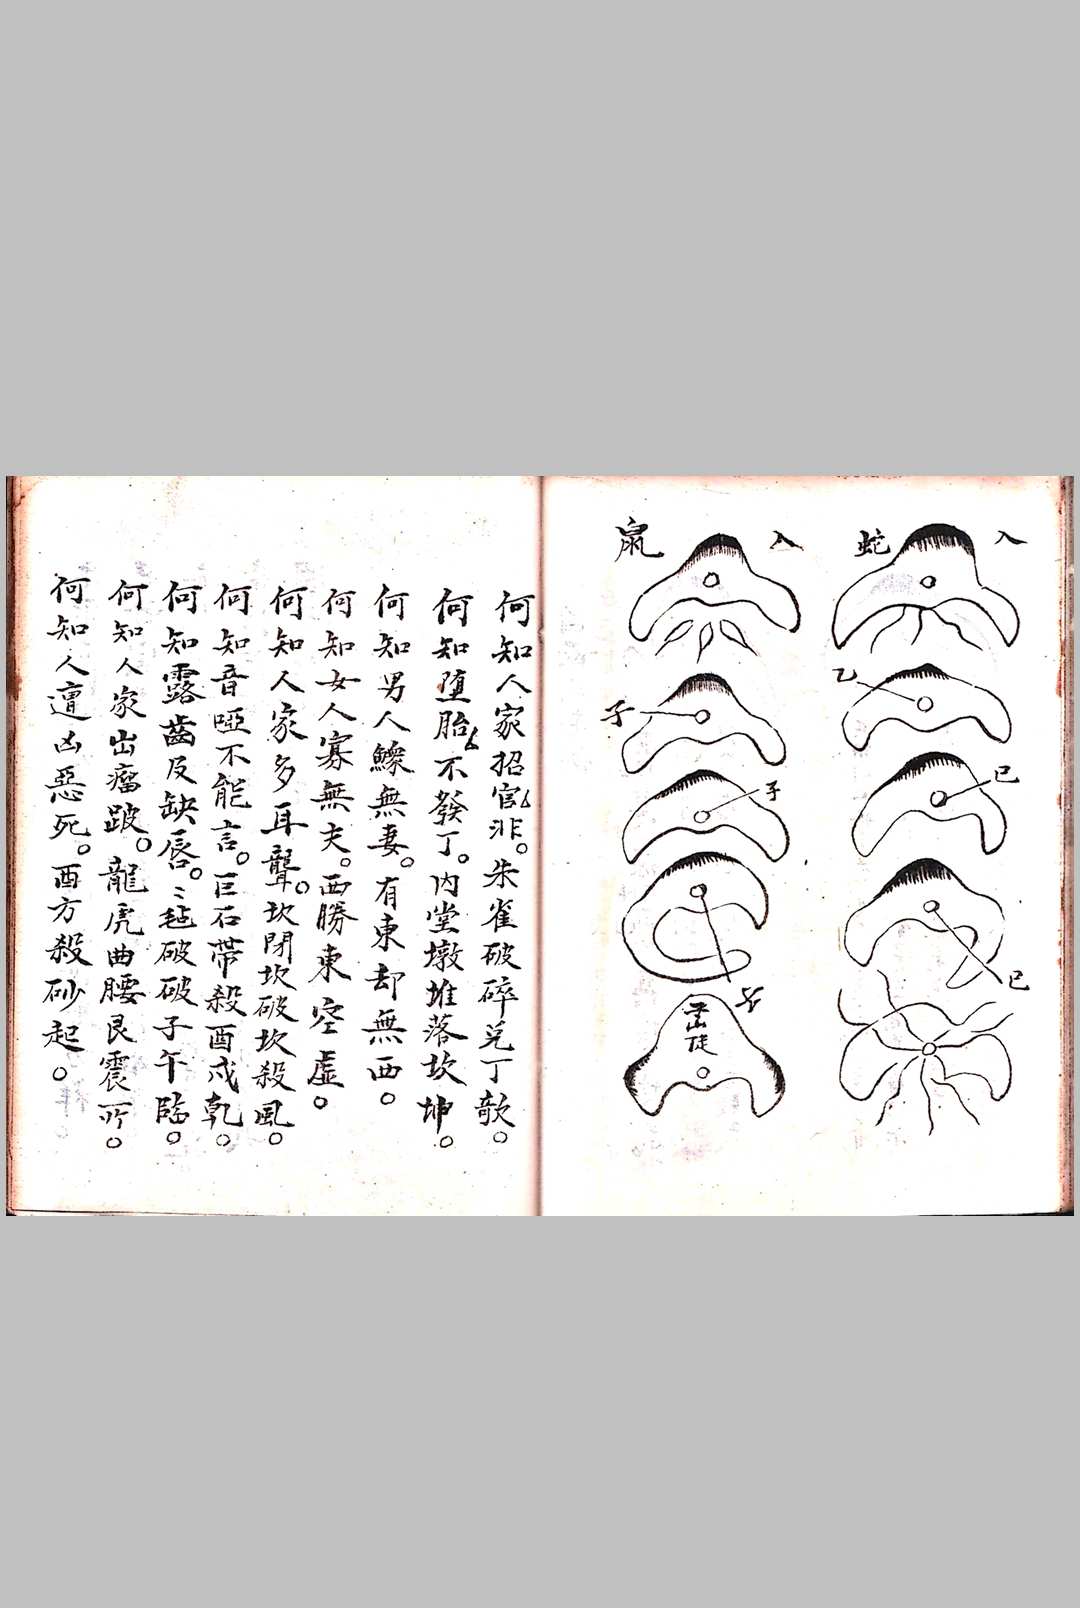 入
蛇
乙
巳
巳
入
鼠
子
子
何知人家招官非。朱雀破碎兌丁欹。
何知墮胎不發丁。內堂墩堆落坎坤。
何知男人鰥無妻。有東却無西。
何知女人寡無夫。西勝東空虛。
何知人家多耳聾。坎閉坎破坎殺風。
何知音啞不能言。巨石帶殺酉戌乾。
何知露齒及缺唇。毡破破子午臨。
何知人家出瘤跛。龍虎曲腰艮震所。
何知人遭凶惡死。酉方殺砂起。